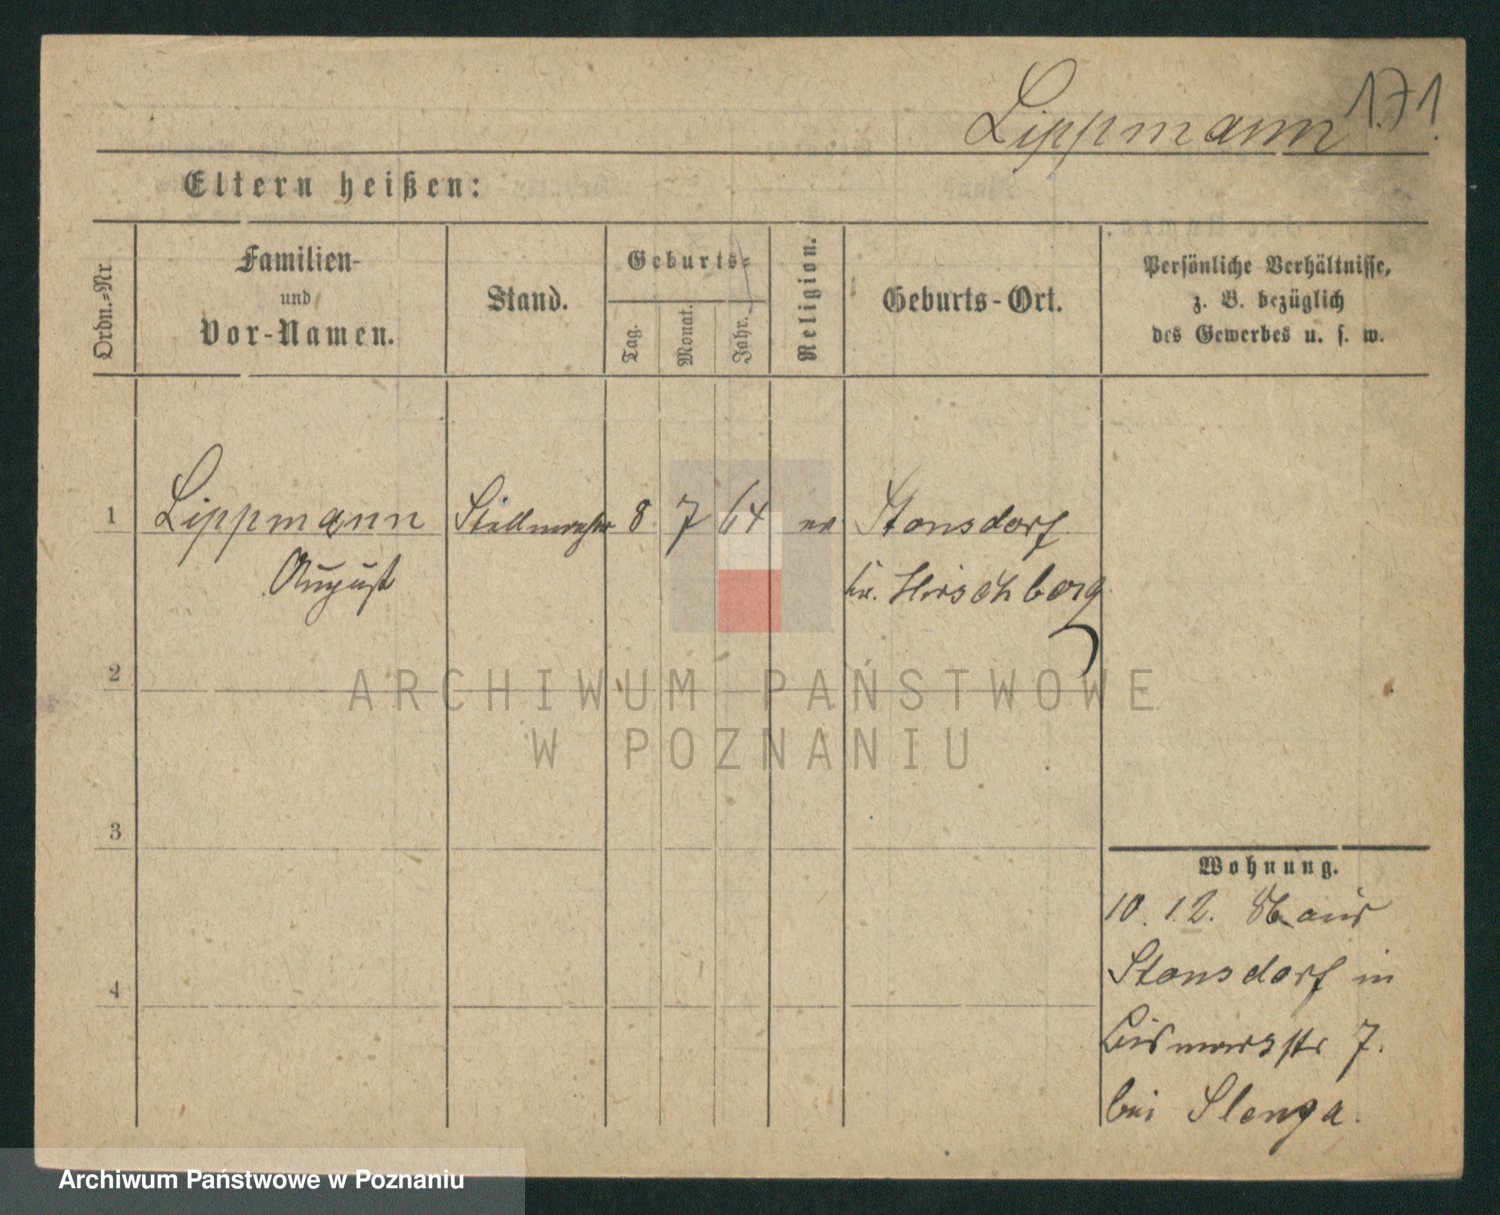 Lippmann 171.
Eltern heißen:
Ordn.=Nr
Familien-
und
Vor-Namen.
Stand.
Geburts=
Tag.
Monat.
Jahr.
Religion.
Geburts-Ort.
Persönliche Verhältnisse,
z. B. bezüglich
des Gewerbes u. s. w.
1 Lippmann 8 7 64 ev Stonsdorf
August kr. Hirschberg
2
ARCHIWUM PAŃSTWOWE
W POZNANIU
3
Wohnung.
10. 12. 86 aus
Stonsdorf in
4
Bismarkstr 7.
bei Slenga.
Archiwum Państwowe w Poznaniu